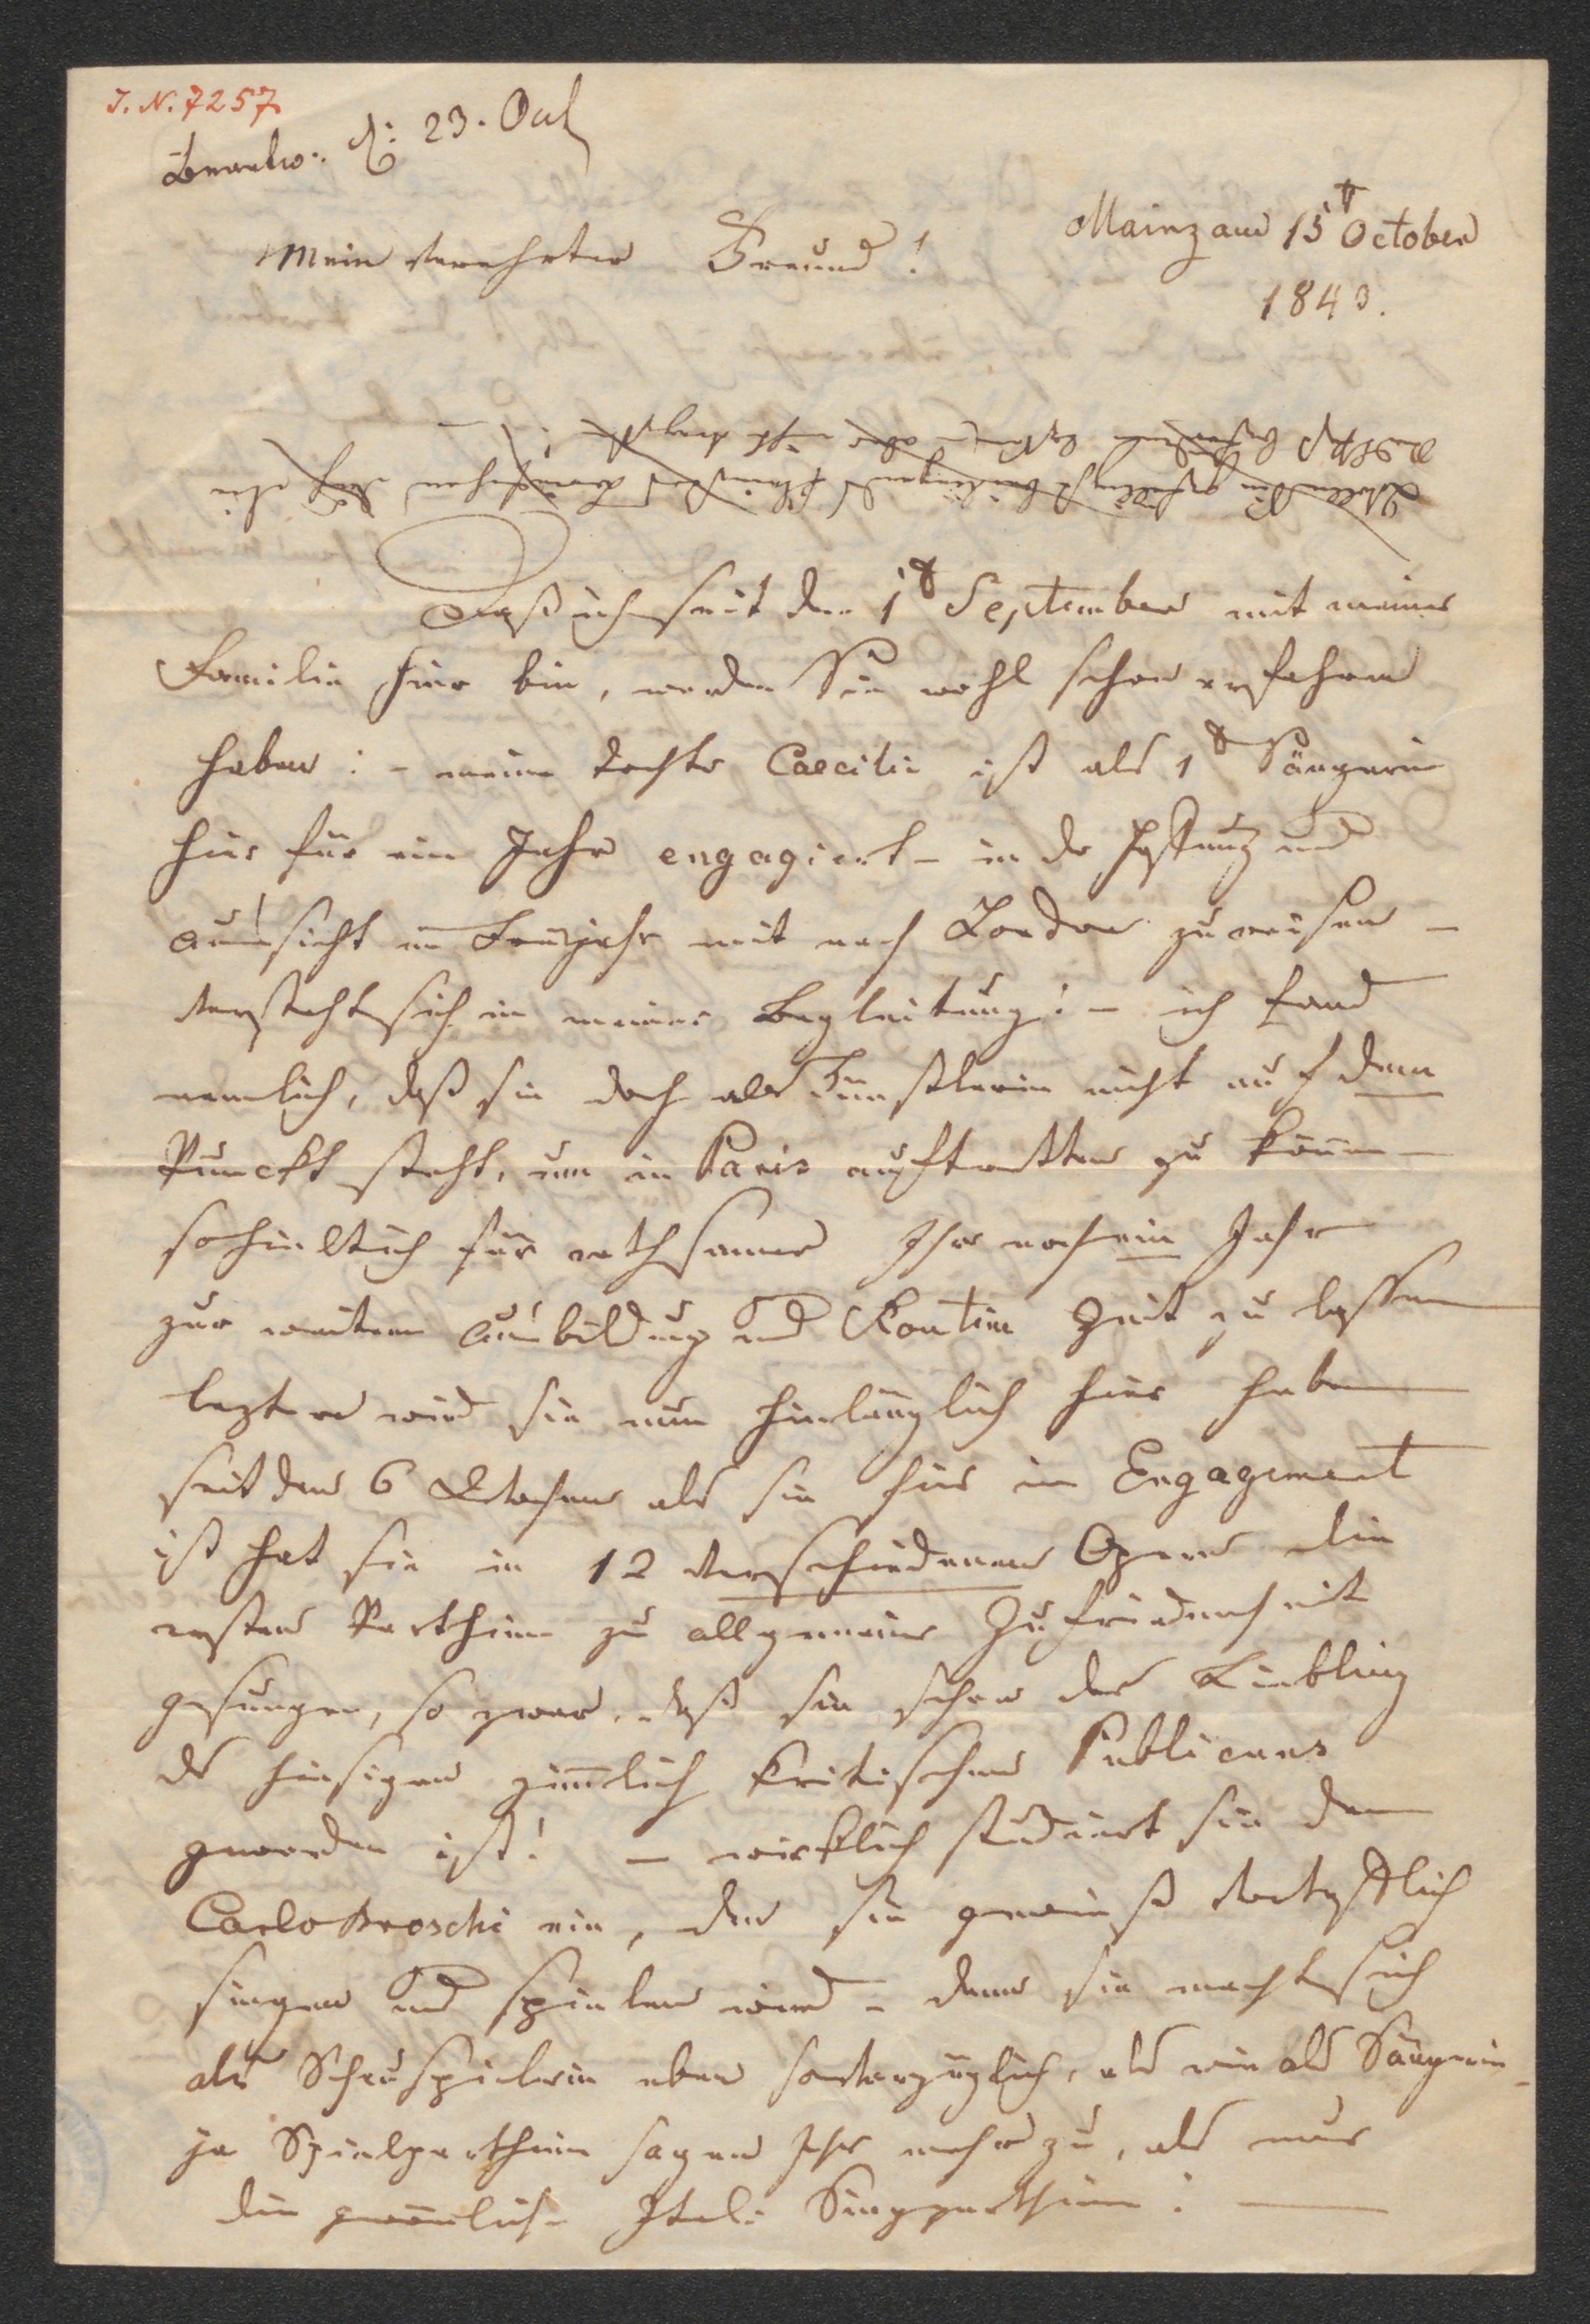 I. N. 7257
Beantw: d: 23. Oct
Mainz am 15t October
1843.
Mein verehrter Freund!
Daß ich seit den 1t September mit meiner
Familie hier bin, werden Sie wohl schon erfahren
haben: – meine Tochter Caecilie ist als 1t Sängerin
hier für ein Jahr engagiert – in der Hoffnung und
Aussicht im Frühjahr mit nach London zu reisen –
versteht sich in meiner Begleitung! – ich fand
nemlich, daß sie doch als Künstlerin nicht auf dem
Punckt steht, um in Paris auftretten zu können –
so hielt ich für rathsamer Ihr noch ein Jahr
zur weitern Ausbildung und Routine Zeit zu lassen
leztere wird sie nun hinlänglich hier haben
seit den 6 Wochen als sie hier im Engagement
ist hat sie in 12 verschiedenen Opern die
ersten Parthien zu allgemeiner Zufriedenheit
gesungen, so zwar, daß sie schon der Liebling
des hiesigen ziemlich kritischen Publicums
geworden ist! – wircklich studiert sie den
Carlo Broschi ein, den sie gewiß vortrefflich
singen und spielen wird – denn sie macht sich
als Schauspielerin eben so vorzüglich, als wie als Sängerin –
ja Spielparthien sagen Ihr mehr zu, als nur
die gewöhnlichen Ital: Singparthien: –